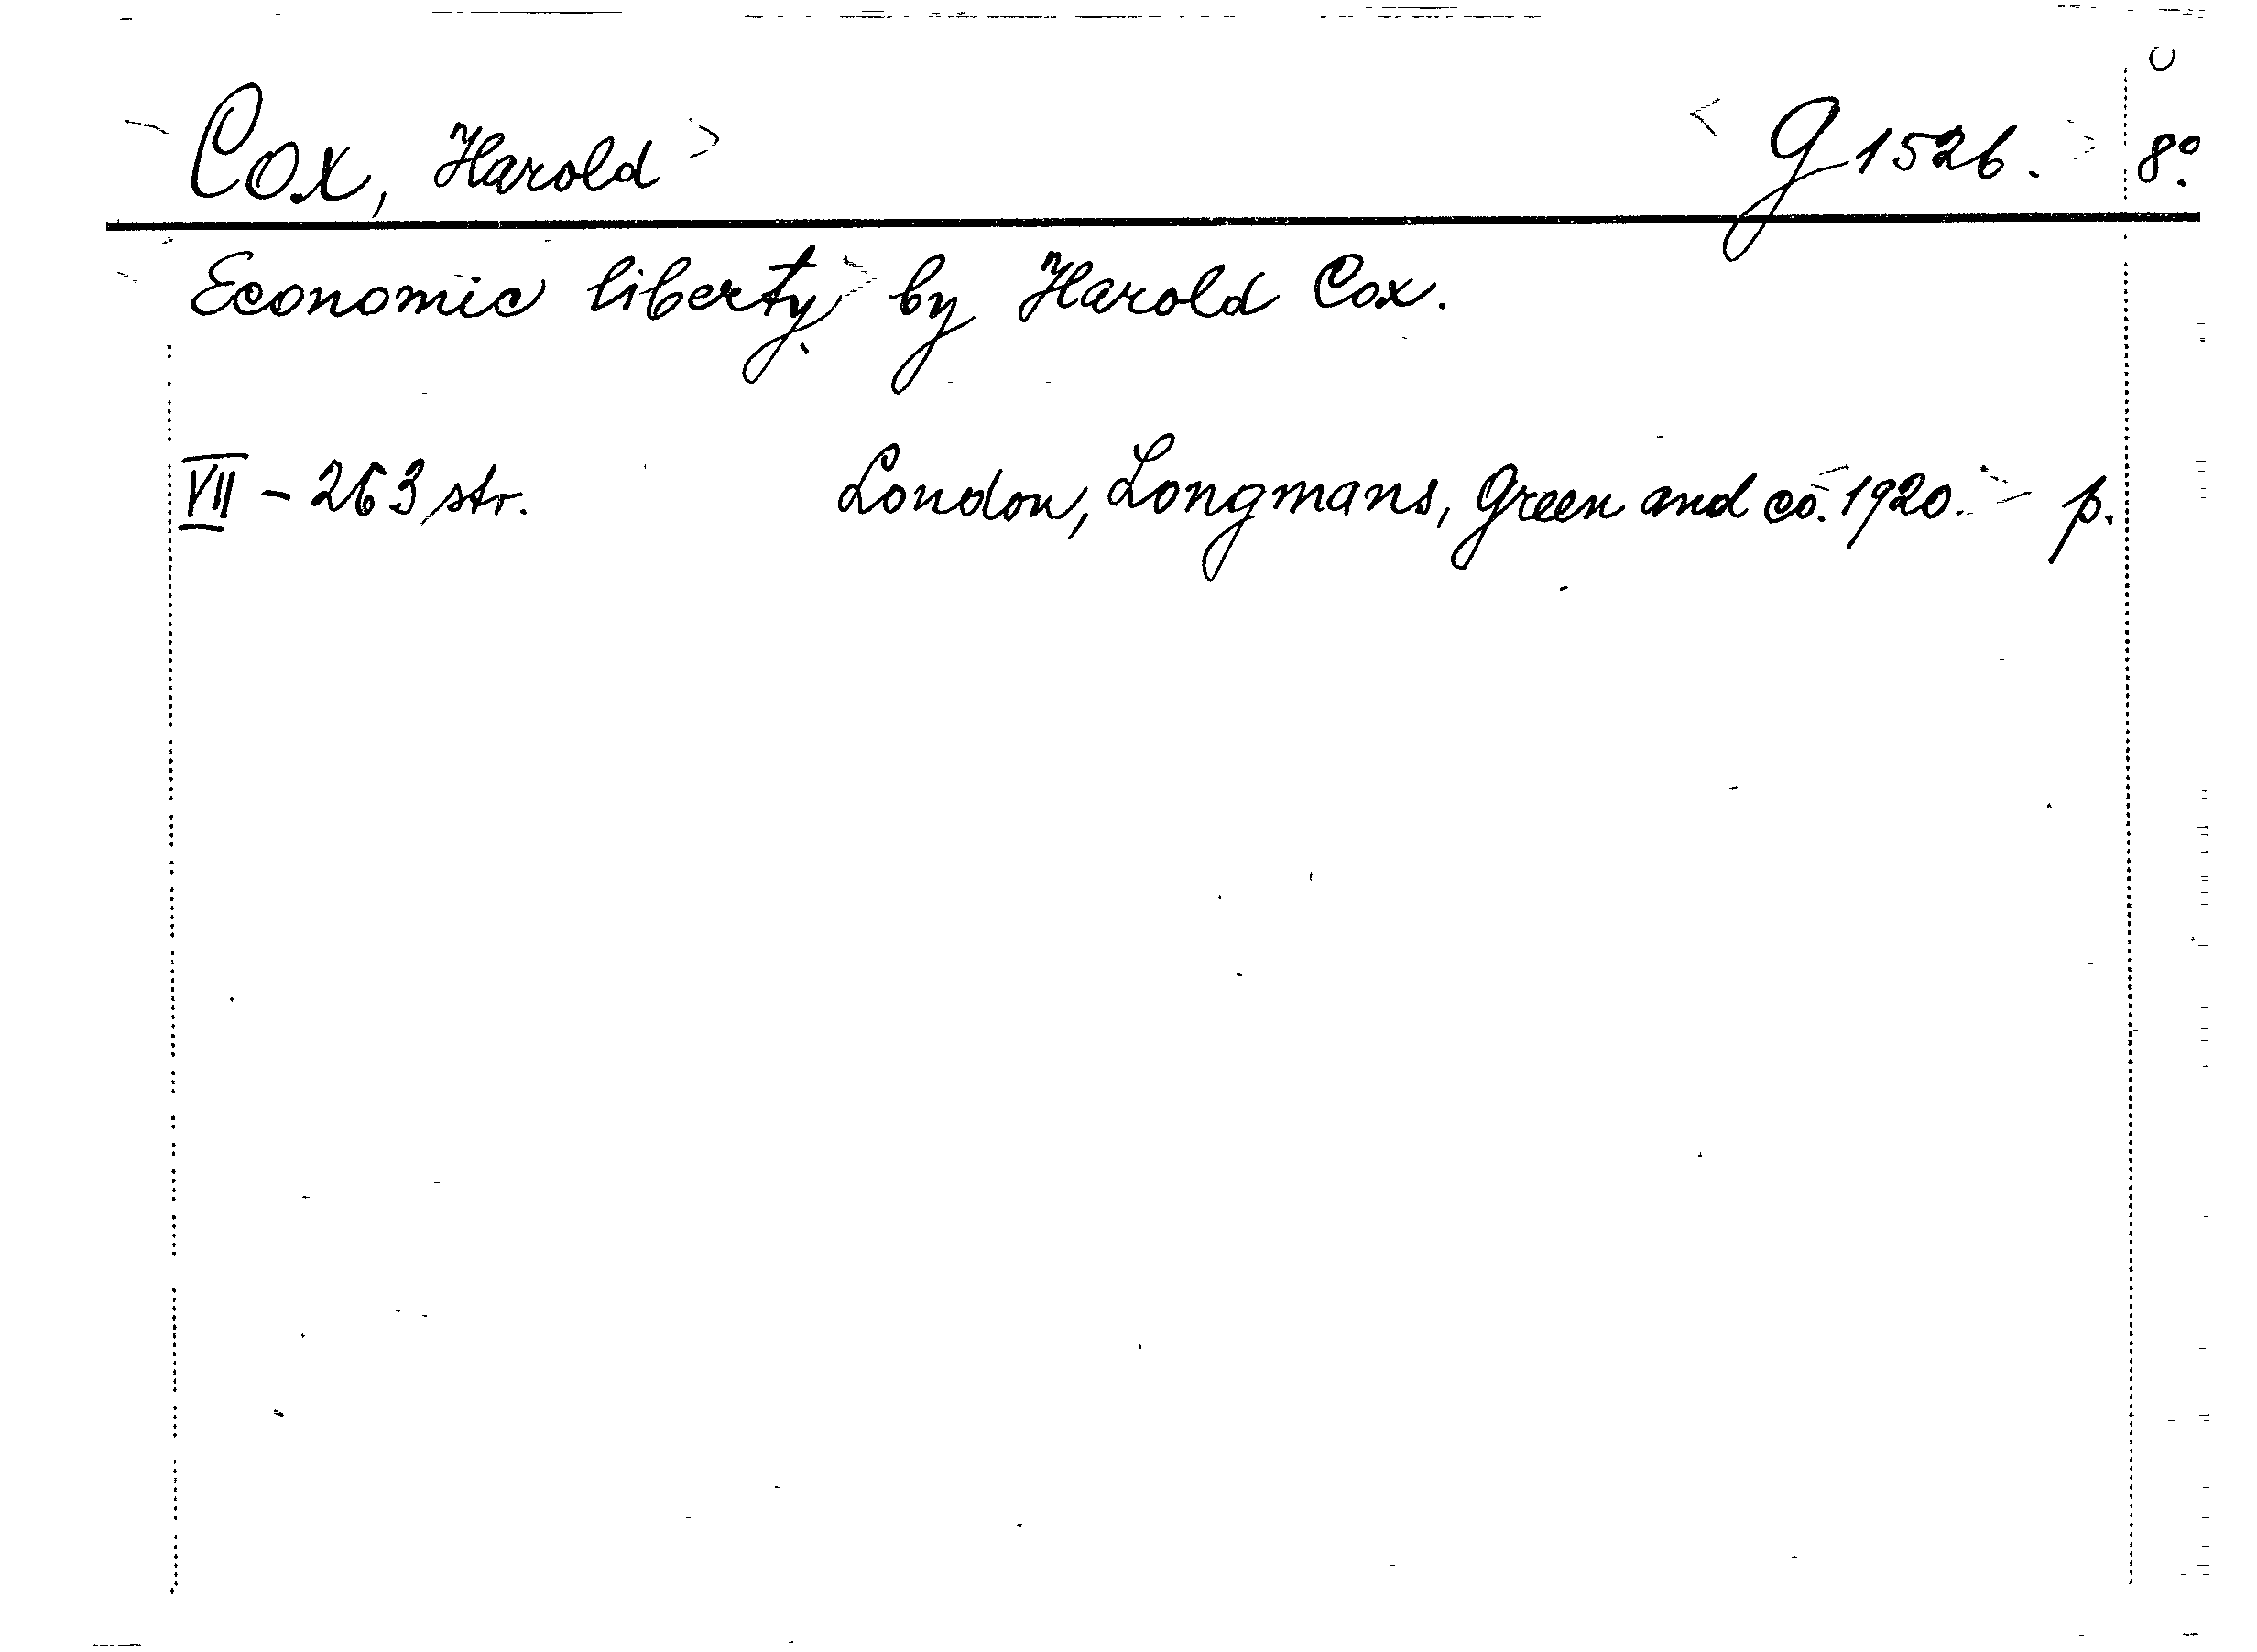 Cox, Harold G 1526. 8º.
Economic liberty by Harold Cox.
VII - 263 str. London, Longmans, Green and co. 1920. p.